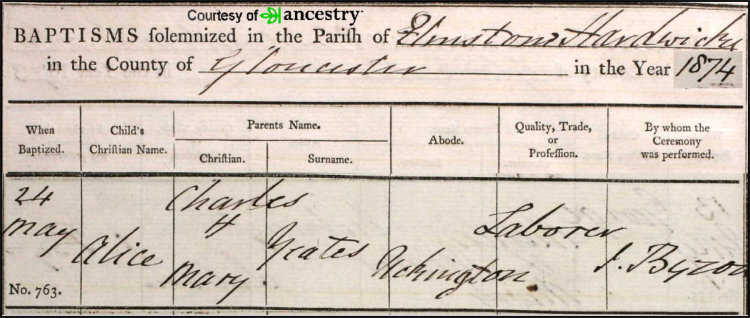 Courtesy of ancestry
BAPTISMS solemnized in the Parish of Elmstone Hardwicke
in the County of Gloucester in the Year 1874
When Baptized.
Child's Christian Name.
Parents Name.
Christian.
Surname.
Abode.
Quality, Trade, or Profession.
By whom the Ceremony was performed.
24
May
Alice
Charles
&
Mary
Yeates
Uckington
Laborer
J. Byron
No. 763.